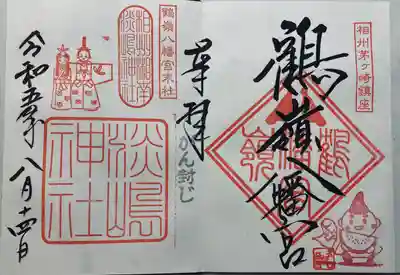 相州茅ヶ崎鎮座
鶴嶺八幡宮
奉拝
がん封じ
鶴嶺八幡宮末社
淡嶋神社
淡嶋神社
令和五年八月十四日